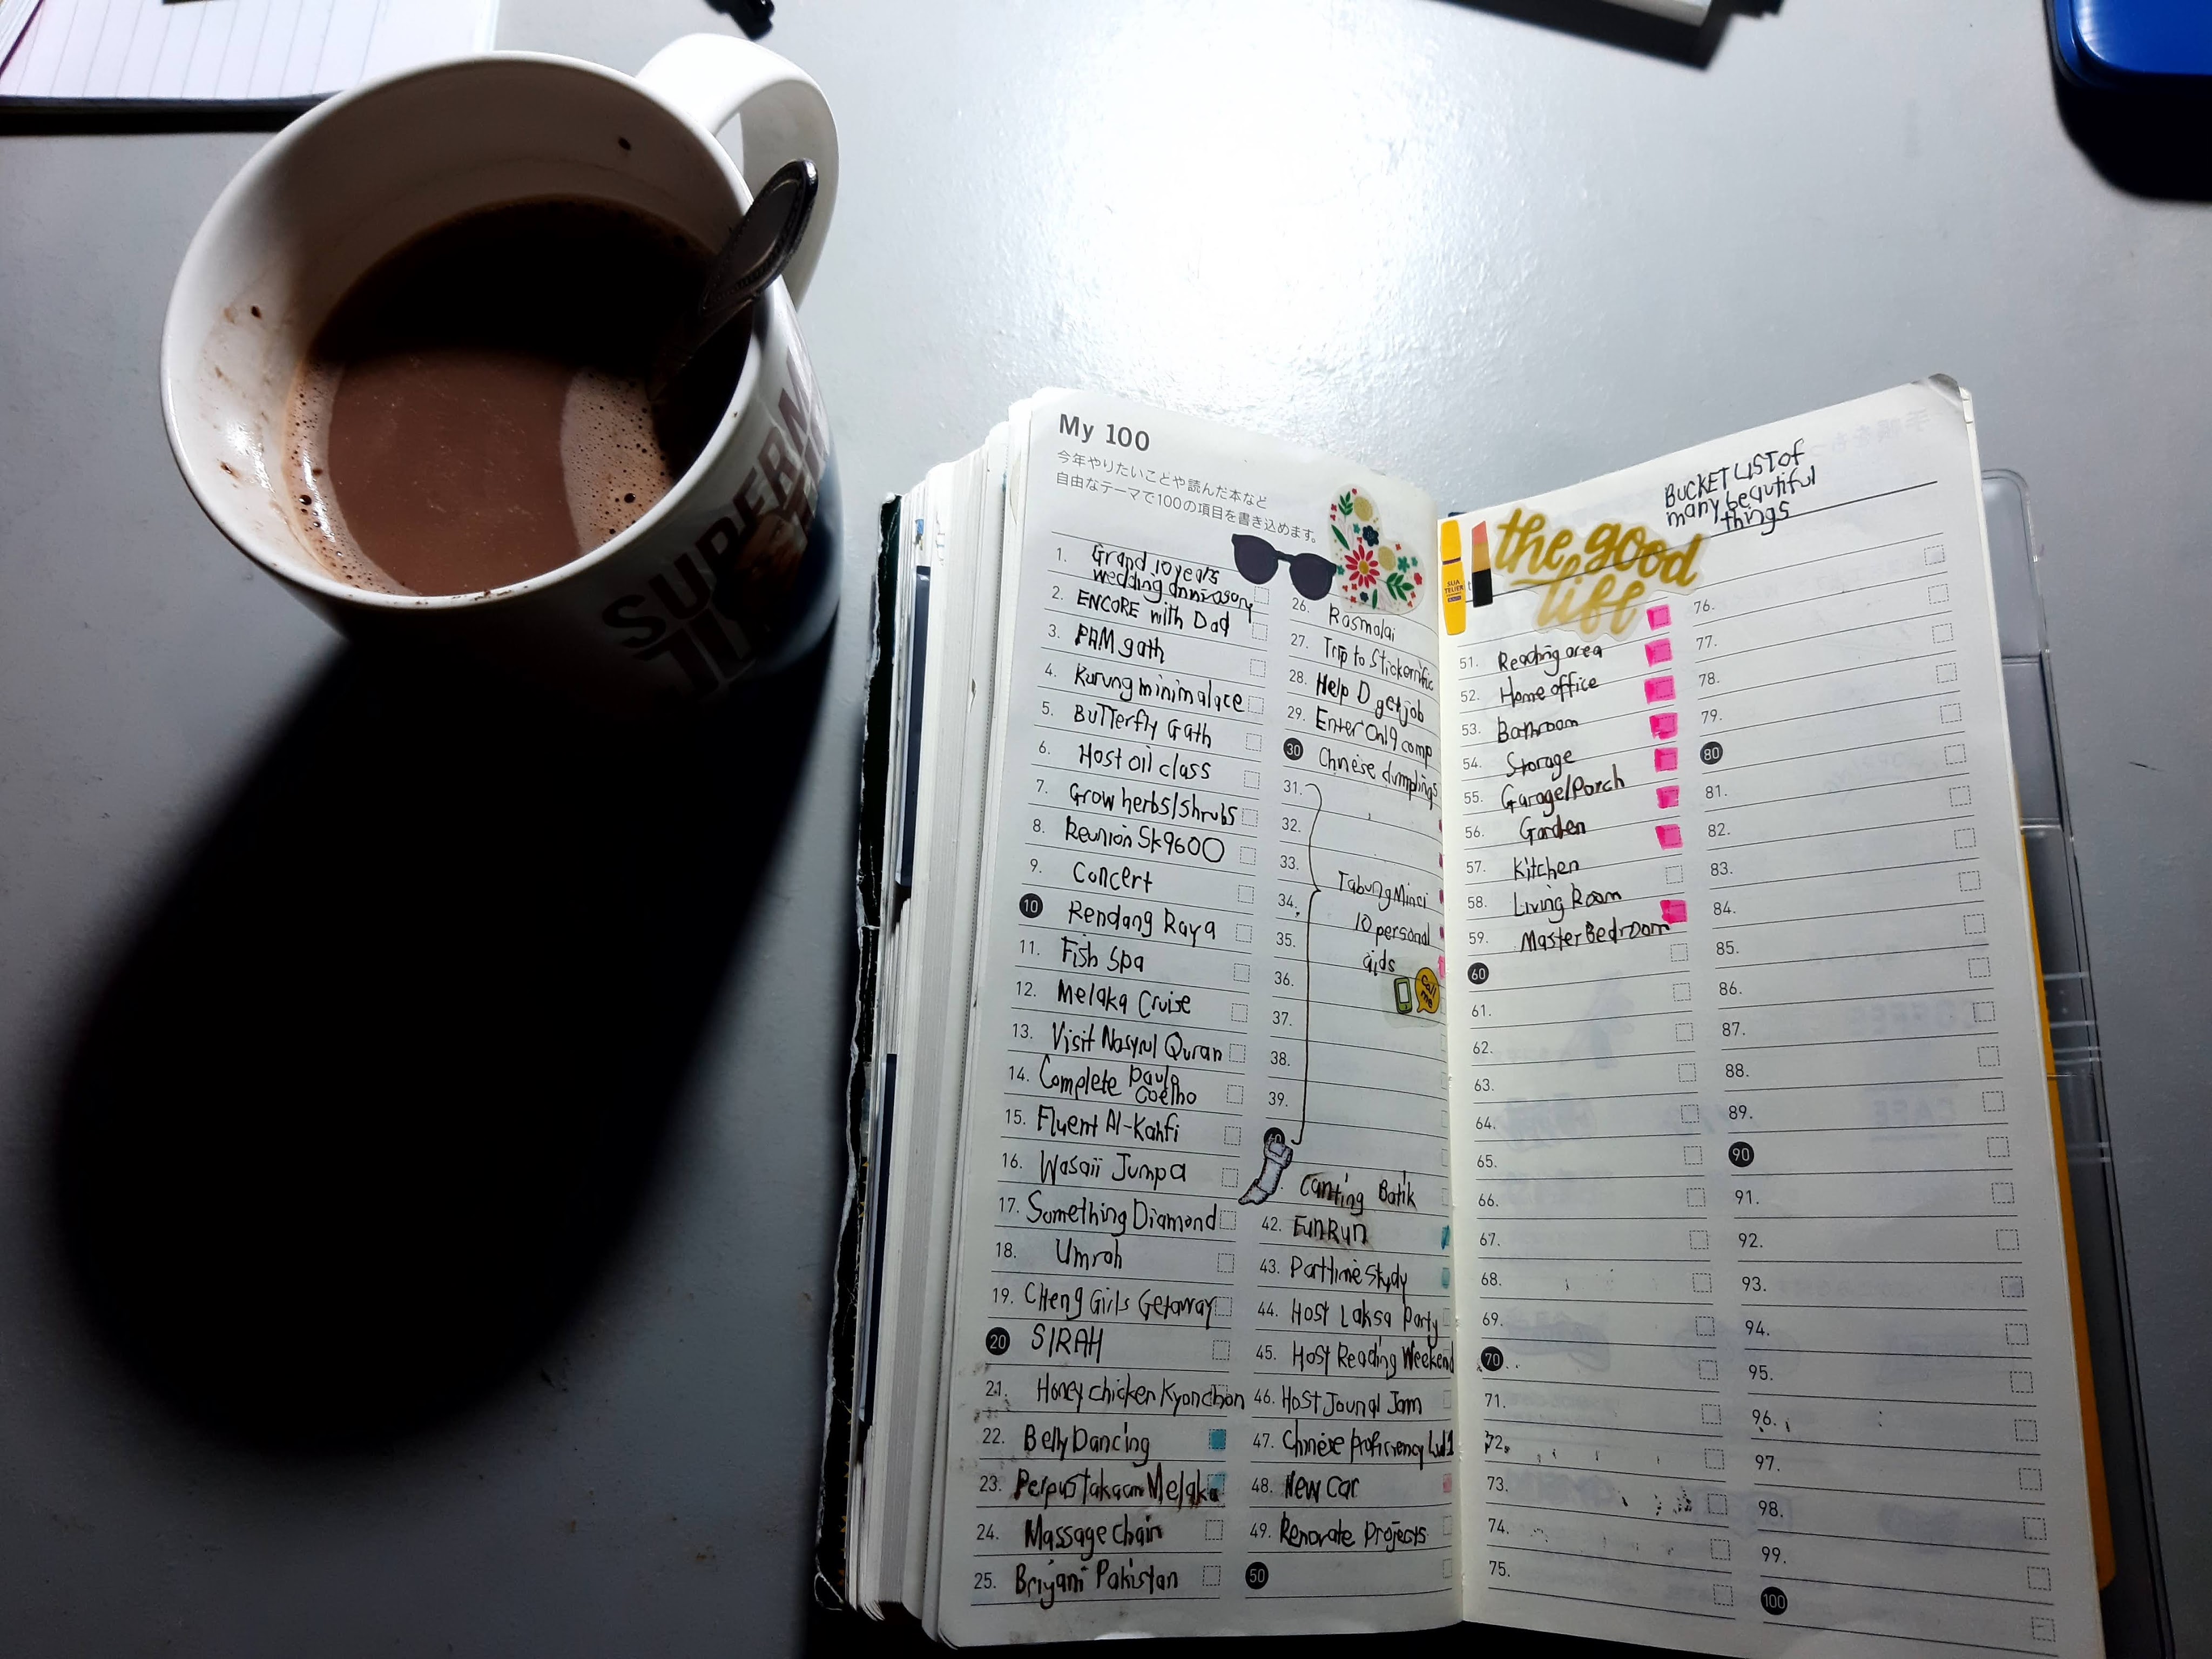 SUPERM
My 100
今年やりたいことや読んだ本など
自由なテーマで100の項目を書き込めます。
1. Grand 10 years
wedding annivasary
2. ENCORE with Dad
3. PAM gath
4. Kurung minimalace
5. Butterfly Gath
6. Host oil class
7. Grow herbs/shrubs
8. Reunion Sk9600
9. Concert
10 Rendang Raya
11. Fish Spa
12. Melaka Cruise
13. Visit Nasyrul Quran
14. Complete Paulo
Coelho
15. Fluent Al-Kahfi
16. Wasaii Jumpa
17. Something Diamond
18. Umrah
19. CHeng Girls Getaway
20 SIRAH
21. Honey chicken Kyonchon
22. Belly Dancing
23. Perpustakaan Melaka
24. Massage chair
25. Briyani Pakistan
26. Rasmalai
27. Trip to Stickerrific
28. Help D get job
29. Enter Onl9 comp
30 Chinese dumplings
31.
32.
33.
Tabung Minci
34.
10 personal
35.
aids
36.
Call
me
37.
38.
39.
40
Canting Batik
42. Fun Run
43. Parttime Study
44. Host Laksa Party
45. Host Reading Weekend
46. Host Jounal Jam
47. Chinese proficiency Lvl 1
48. New Car
49. Renovate Projects
50
BUCKET LIST of
many beautiful
things
the good
life
51. Reading area
52. Home office
53. Bathroom
54. Storage
55. Garage/Porch
56. Garden
57. Kitchen
58. Living Room
59. Master Bedroom
60
61.
62.
63.
64.
65.
66.
67.
68.
69.
70
71.
72.
73.
74.
75.
76.
77.
78.
79.
80
81.
82.
83.
84.
85.
86.
87.
88.
89.
90
91.
92.
93.
94.
95.
96.
97.
98.
99.
100